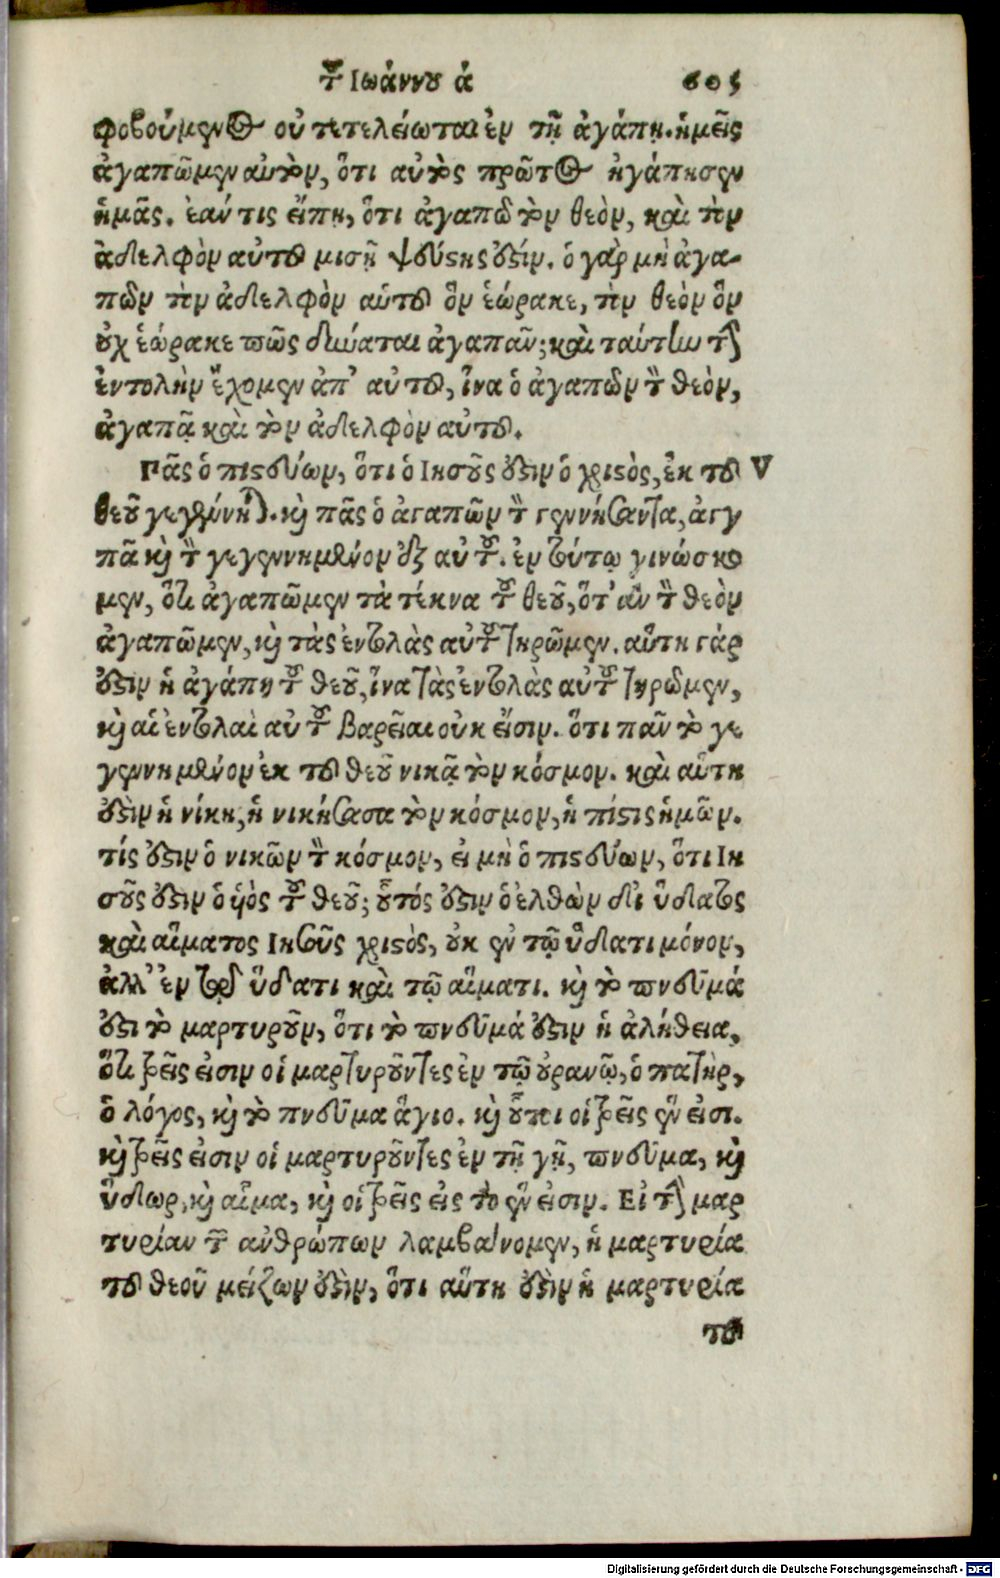 τοῦ Ἰωάννου ά 605
φοβούμενος οὐ τετελείωται ἐν τῇ ἀγάπῃ. ἡμεῖς
ἀγαπῶμεν αὐτὸν, ὅτι αὐτὸς πρῶτος ἠγάπησεν
ἡμᾶς. ἐάν τις εἴπῃ, ὅτι ἀγαπῶ τὸν θεὸν, καὶ τὸν
ἀδελφὸν αὐτοῦ μισῇ ψεύστης ἐστίν. ὁ γὰρ μὴ ἀγα-
πῶν τὸν ἀδελφὸν αὑτοῦ ὃν ἑώρακε, τὸν θεὸν ὃν
οὐχ ἑώρακε πῶς δύναται ἀγαπᾶν; καὶ ταύτην τὴν
ἐντολὴν ἔχομεν ἀπ' αὐτοῦ, ἵνα ὁ ἀγαπῶν τὸν θεὸν,
ἀγαπᾷ καὶ τὸν ἀδελφὸν αὐτοῦ.
Πᾶς ὁ πιστεύων, ὅτι ὁ Ἰησοῦς ἐστιν ὁ χριστὸς, ἐκ τοῦ V
θεοῦ γεγέννηται. καὶ πᾶς ὁ ἀγαπῶν τὸν γεννήσαντα, ἀγα
πᾶ καὶ τὸν γεγεννημένον ἐξ αὐτοῦ. ἐν τούτῳ γινώσκο
μεν, ὅτι ἀγαπῶμεν τὰ τέκνα τοῦ θεοῦ, ὅτ' ἂν τὸν θεὸν
ἀγαπῶμεν, καὶ τὰς ἐντολὰς αὐτοῦ τηρῶμεν. αὕτη γάρ
ἐστιν ἡ ἀγάπη τοῦ θεοῦ, ἵνα τὰς ἐντολὰς αὐτοῦ τηρῶμεν,
καὶ αἱ ἐντολαὶ αὐτοῦ βαρεῖαι οὐκ εἴσιν. ὅτι πᾶν τὸ γε
γεννημένον ἐκ τοῦ θεοῦ νικᾷ τὸν κόσμον. καὶ αὕτη
ἐστὶν ἡ νίκη, ἡ νικήσασα τὸν κόσμον, ἡ πίστις ἡμῶν.
τίς ἐστιν ὁ νικῶν τὸν κόσμον, εἰ μὴ ὁ πιστεύων, ὅτι Ἰη
σοῦς ἐστιν ὁ ὑὸς τοῦ θεοῦ; οὗτός ἐστιν ὁ ἐλθὼν δι ὕδατος
καὶ αἵματος Ἰησοῦς χριστὸς, οὐκ ἐν τῷ ὕδατι μόνον,
ἀλλ' ἐν τῷ ὕδατι καὶ τῷ αἵματι. καὶ τὸ πνεῦμά
ἐστι τὸ μαρτυροῦν, ὅτι τὸ πνεῦμά ἐστιν ἡ ἀλήθεια,
ὅτι τρεῖς εἰσιν οἱ μαρτυροῦντες ἐν τῷ οὐρανῷ, ὁ πατὴρ,
ὁ λόγος, καὶ τὸ πνεῦμα ἅγιο. καὶ οὗτοι οἱ τρεῖς ἕν εἰσι.
καὶ τρεῖς εἰσιν οἱ μαρτυροῦντες ἐν τῇ γῇ, πνεῦμα, καὶ
ὕδωρ, καὶ αἷμα, καὶ οἱ τρεῖς εἰς τὸ ἕν εἰσιν. Εἰ τὴν μαρ
τυρίαν τῶν ἀνθρώπων λαμβάνομεν, ἡ μαρτυρία
τοῦ θεοῦ μείζων ἐστὶν, ὅτι αὕτη ἐστὶν ἡ μαρτυρία
τοῦ
Digitalisierung gefördert durch die Deutsche Forschungsgemeinschaft - DFG